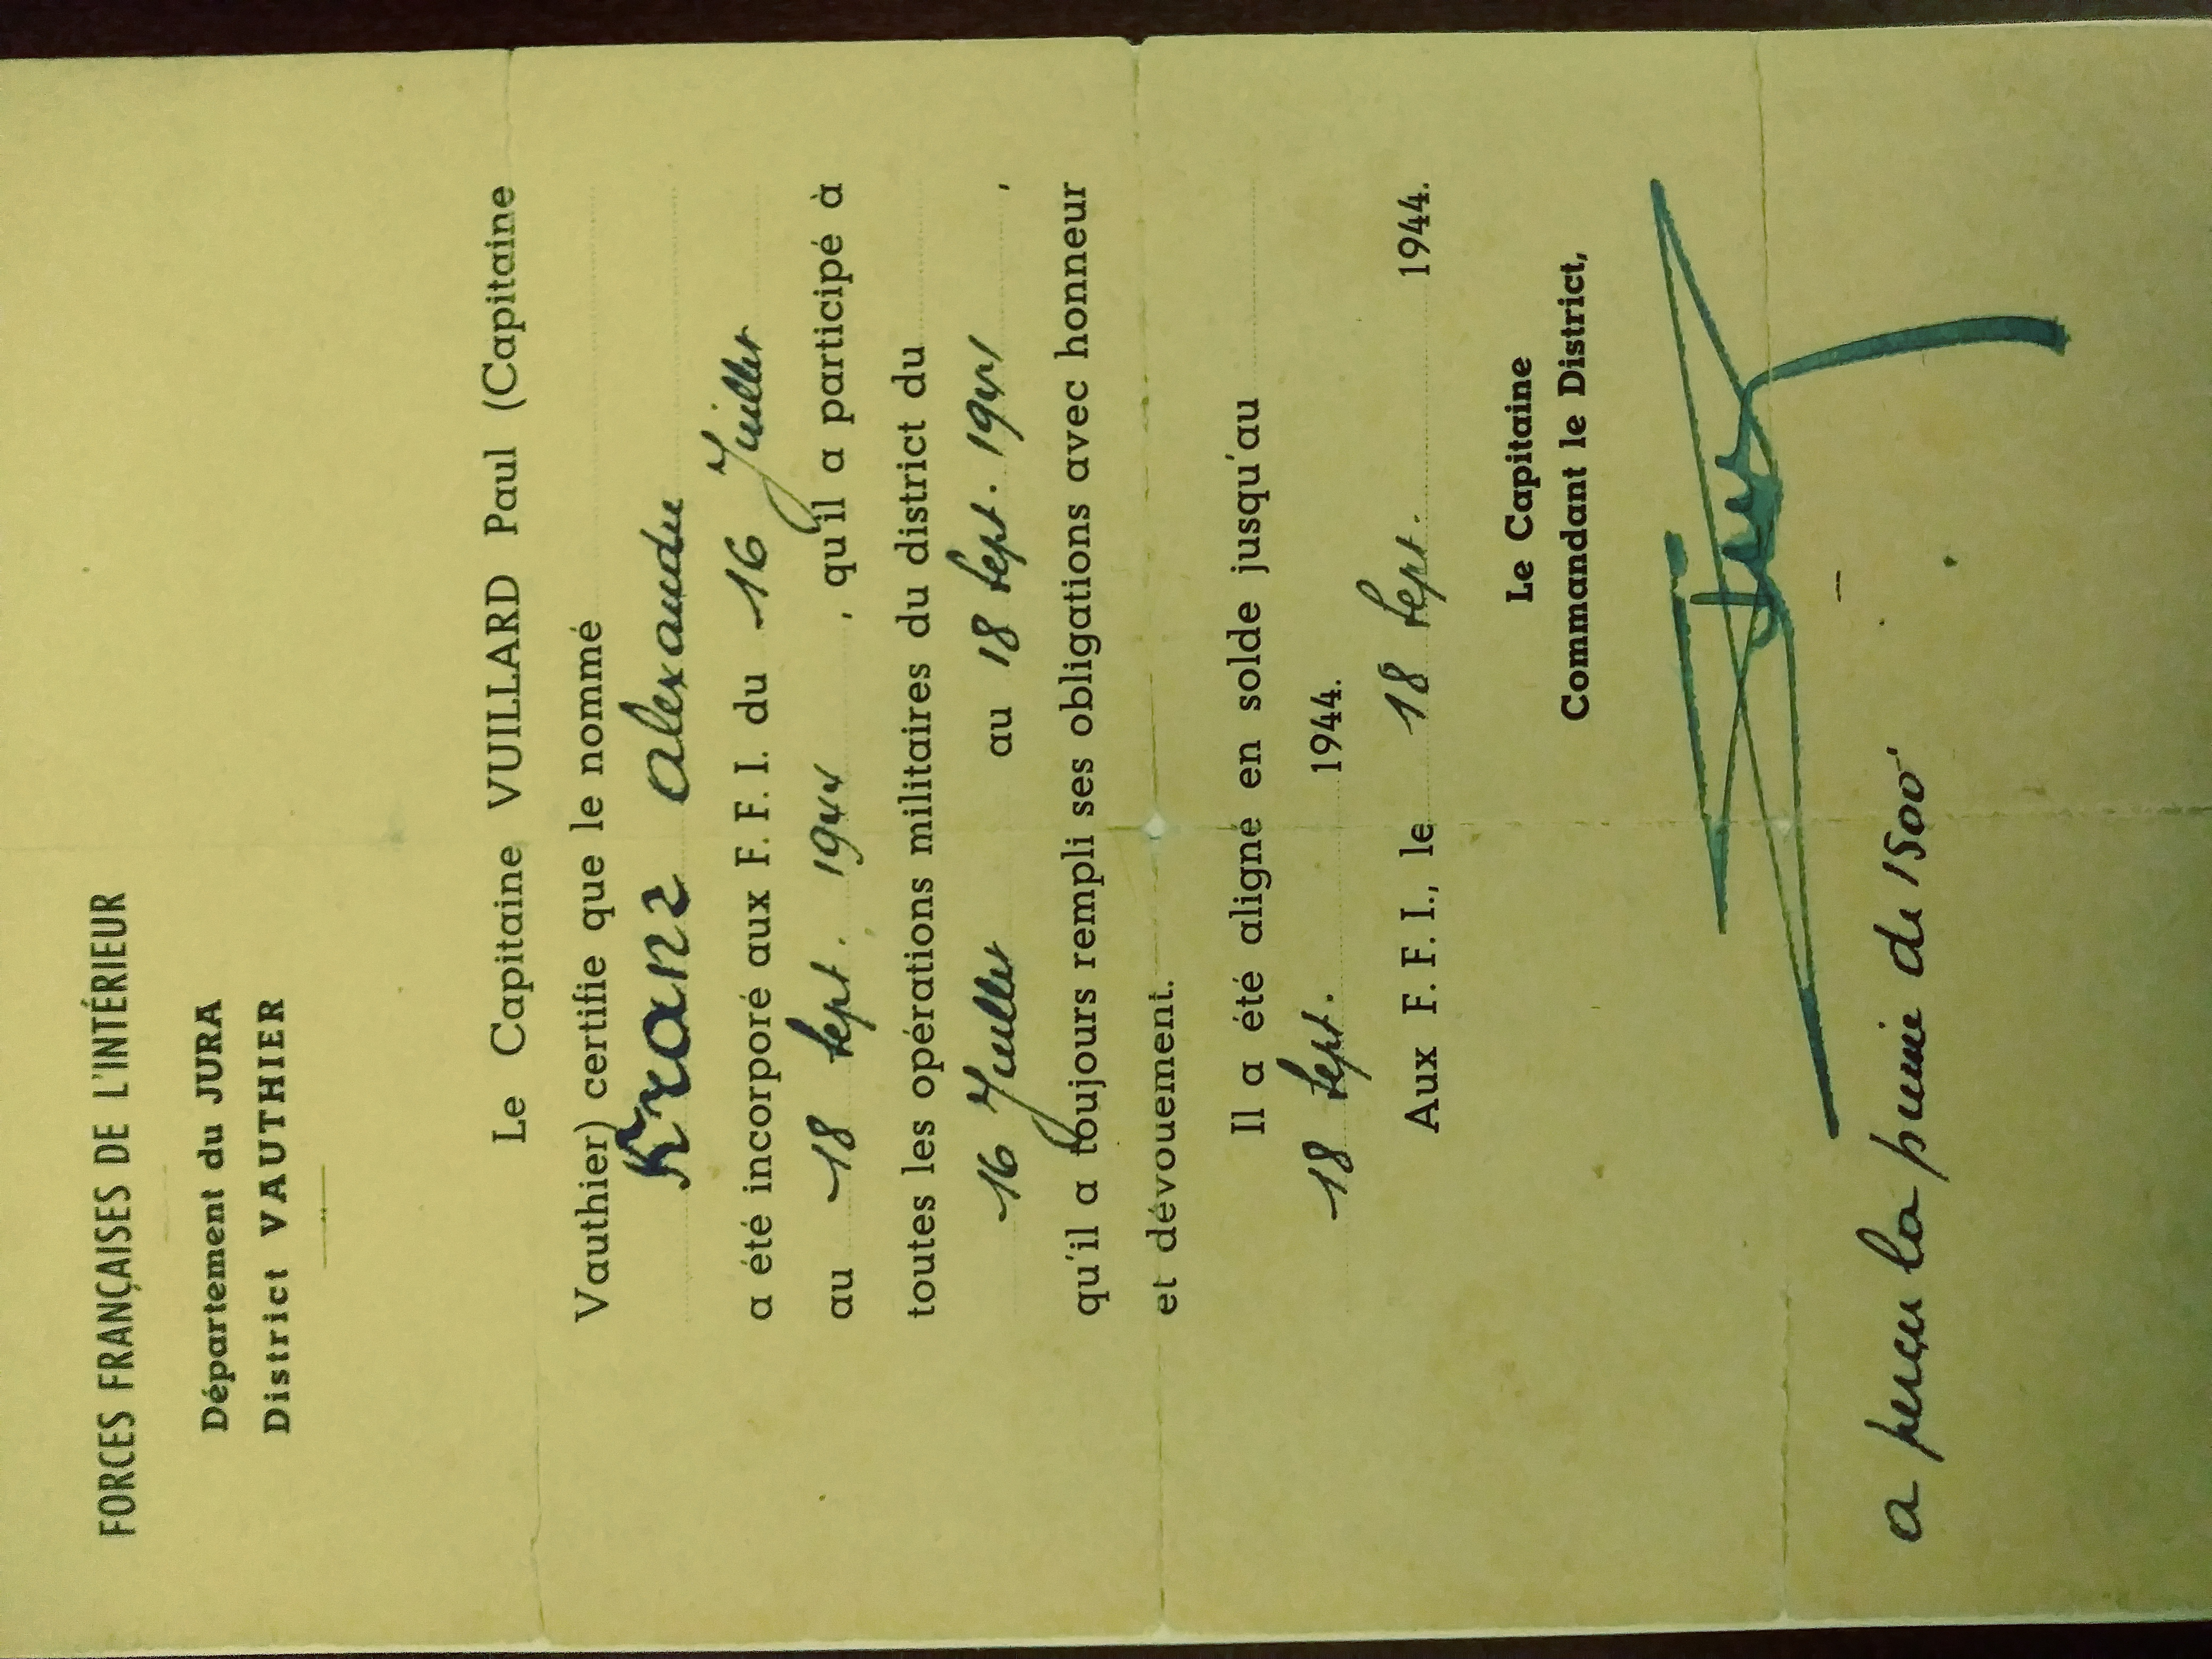 FORCES FRANÇAISES DE L'INTÉRIEUR
Département du JURA
District VAUTHIER
Le Capitaine VUILLARD Paul (Capitaine
Vauthier) certifie que le nommé
Kranz Alexandre
a été incorporé aux F. F. I. du 16 Juillet
au 18 Sept. 1944, qu'il a participé à
toutes les opérations militaires du district du
16 Juillet au 18 Sept. 1944,
qu'il a toujours rempli ses obligations avec honneur
et dévouement.
Il a été aligné en solde jusqu'au
18 Sept. 1944.
Aux F. F. I., le 18 Sept. 1944.
Le Capitaine
Commandant le District,
a perçu la prime de 1500